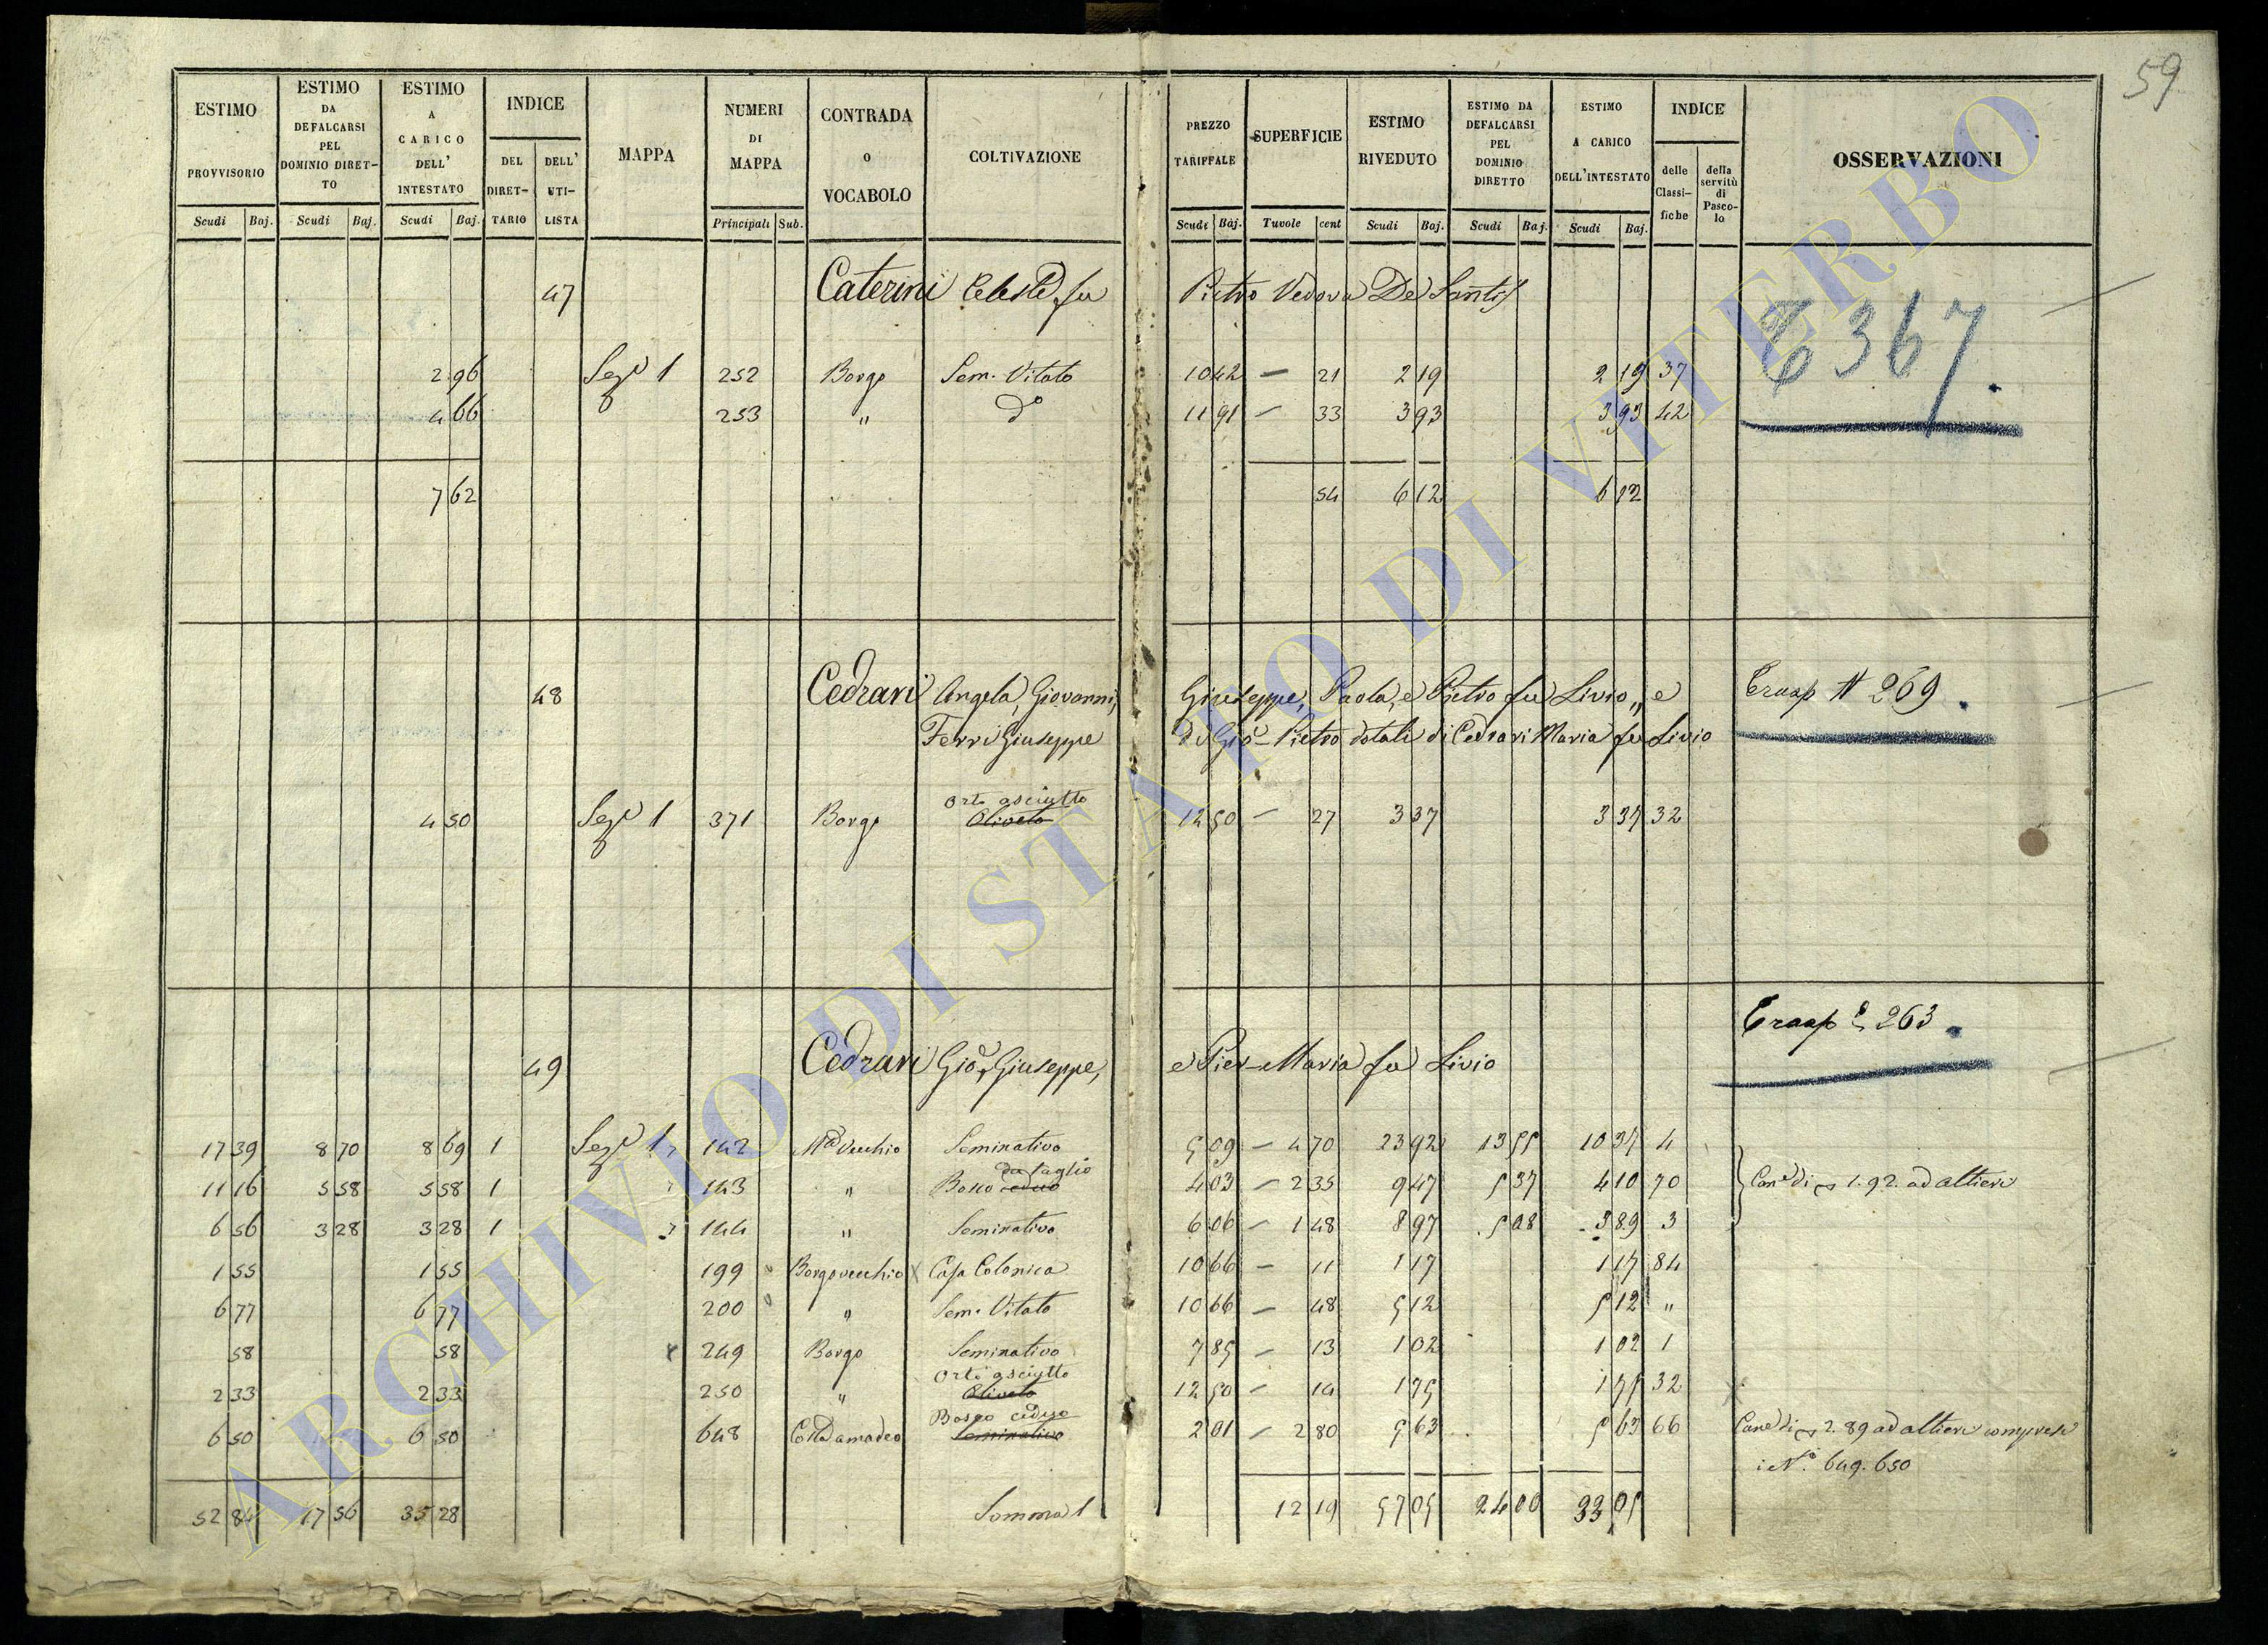 59
ESTIMO PROVVISORIO Scudi Baj.
ESTIMO DA DEFALCARSI PEL DOMINIO DIRETTO Scudi Baj.
ESTIMO A CARICO DELL' INTESTATO Scudi Baj.
INDICE DEL DIRETTARIO DELL' UTILISTA
MAPPA
NUMERI DI MAPPA Principali Sub.
CONTRADA O VOCABOLO
COLTIVAZIONE
PREZZO TARIFFALE Scudi Baj.
SUPERFICIE Tavole cent
ESTIMO RIVEDUTO Scudi Baj.
ESTIMO DA DEFALCARSI PEL DOMINIO DIRETTO Scudi Baj.
ESTIMO A CARICO DELL'INTESTATO Scudi Baj.
INDICE delle Classifiche della servitù di Pascolo
OSSERVAZIONI
47 Caterini Celeste fu Pietro Vedova De Santis
367
2 96 Sez.e 1 252 Borgo Sem. Vitato 10 42 — 21 2 19 2 19 37
4 66 253 " do 11 91 — 33 3 93 3 93 42
7 62 54 6 12 6 12
48 Cedrari Angela, Giovanni, Giuseppe, Paola, e Pietro fu Livio, e Trasp N 269
Ferri Giuseppe di Gio- Pietro dotali di Cedrari Maria fu Livio
Orto asciutto
4 50 Sez.e 1 371 Borgo Oliveto 12 50 — 27 3 37 3 37 32
Trasp 263
49 Cedrari Gio, Giuseppe, e Pier-Maria fu Livio
17 39 8 70 8 69 1 Sez.e 1 142 Vecchio Seminativo 5 09 — 4 70 23 92 13 55 10 37 4
da taglio
11 16 5 58 5 58 1 143 " Bosco ceduo 4 03 — 2 35 9 47 5 37 4 10 70 Can.e di 1.92. ad altieri
6 56 3 28 3 28 1 144 " Seminativo 6 06 — 1 48 8 97 5 08 3 89 3
1 55 1 55 199 Borgovecchio Casa Colonica 10 66 — 11 1 17 1 17 84
6 77 6 77 200 " Sem. Vitato 10 66 — 48 5 12 5 12 "
58 58 249 Borgo Seminativo 7 85 — 13 1 02 1 02 1
Orto asciutto
2 33 2 33 250 " Oliveto 12 50 — 14 1 75 1 75 32
Bosco ceduo
6 50 6 50 648 Costa amadeo Seminativo 2 01 — 2 80 5 63 5 63 66 Can.e di 2.89 ad altieri compresi
i N.i 649. 650
52 84 17 56 35 28 Somma 12 19 57 05 24 00 33 05
ARCHIVIO DI STATO DI VITERBO